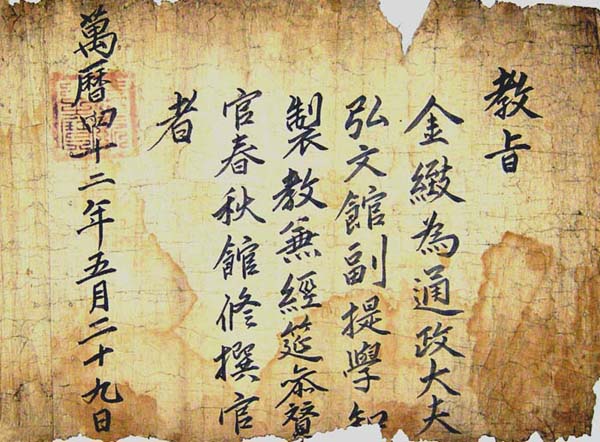 教旨
金緻為通政大夫
弘文館副提學知
製教兼經筵叅賛
官春秋館修撰官
者
萬曆四十二年五月二十九日